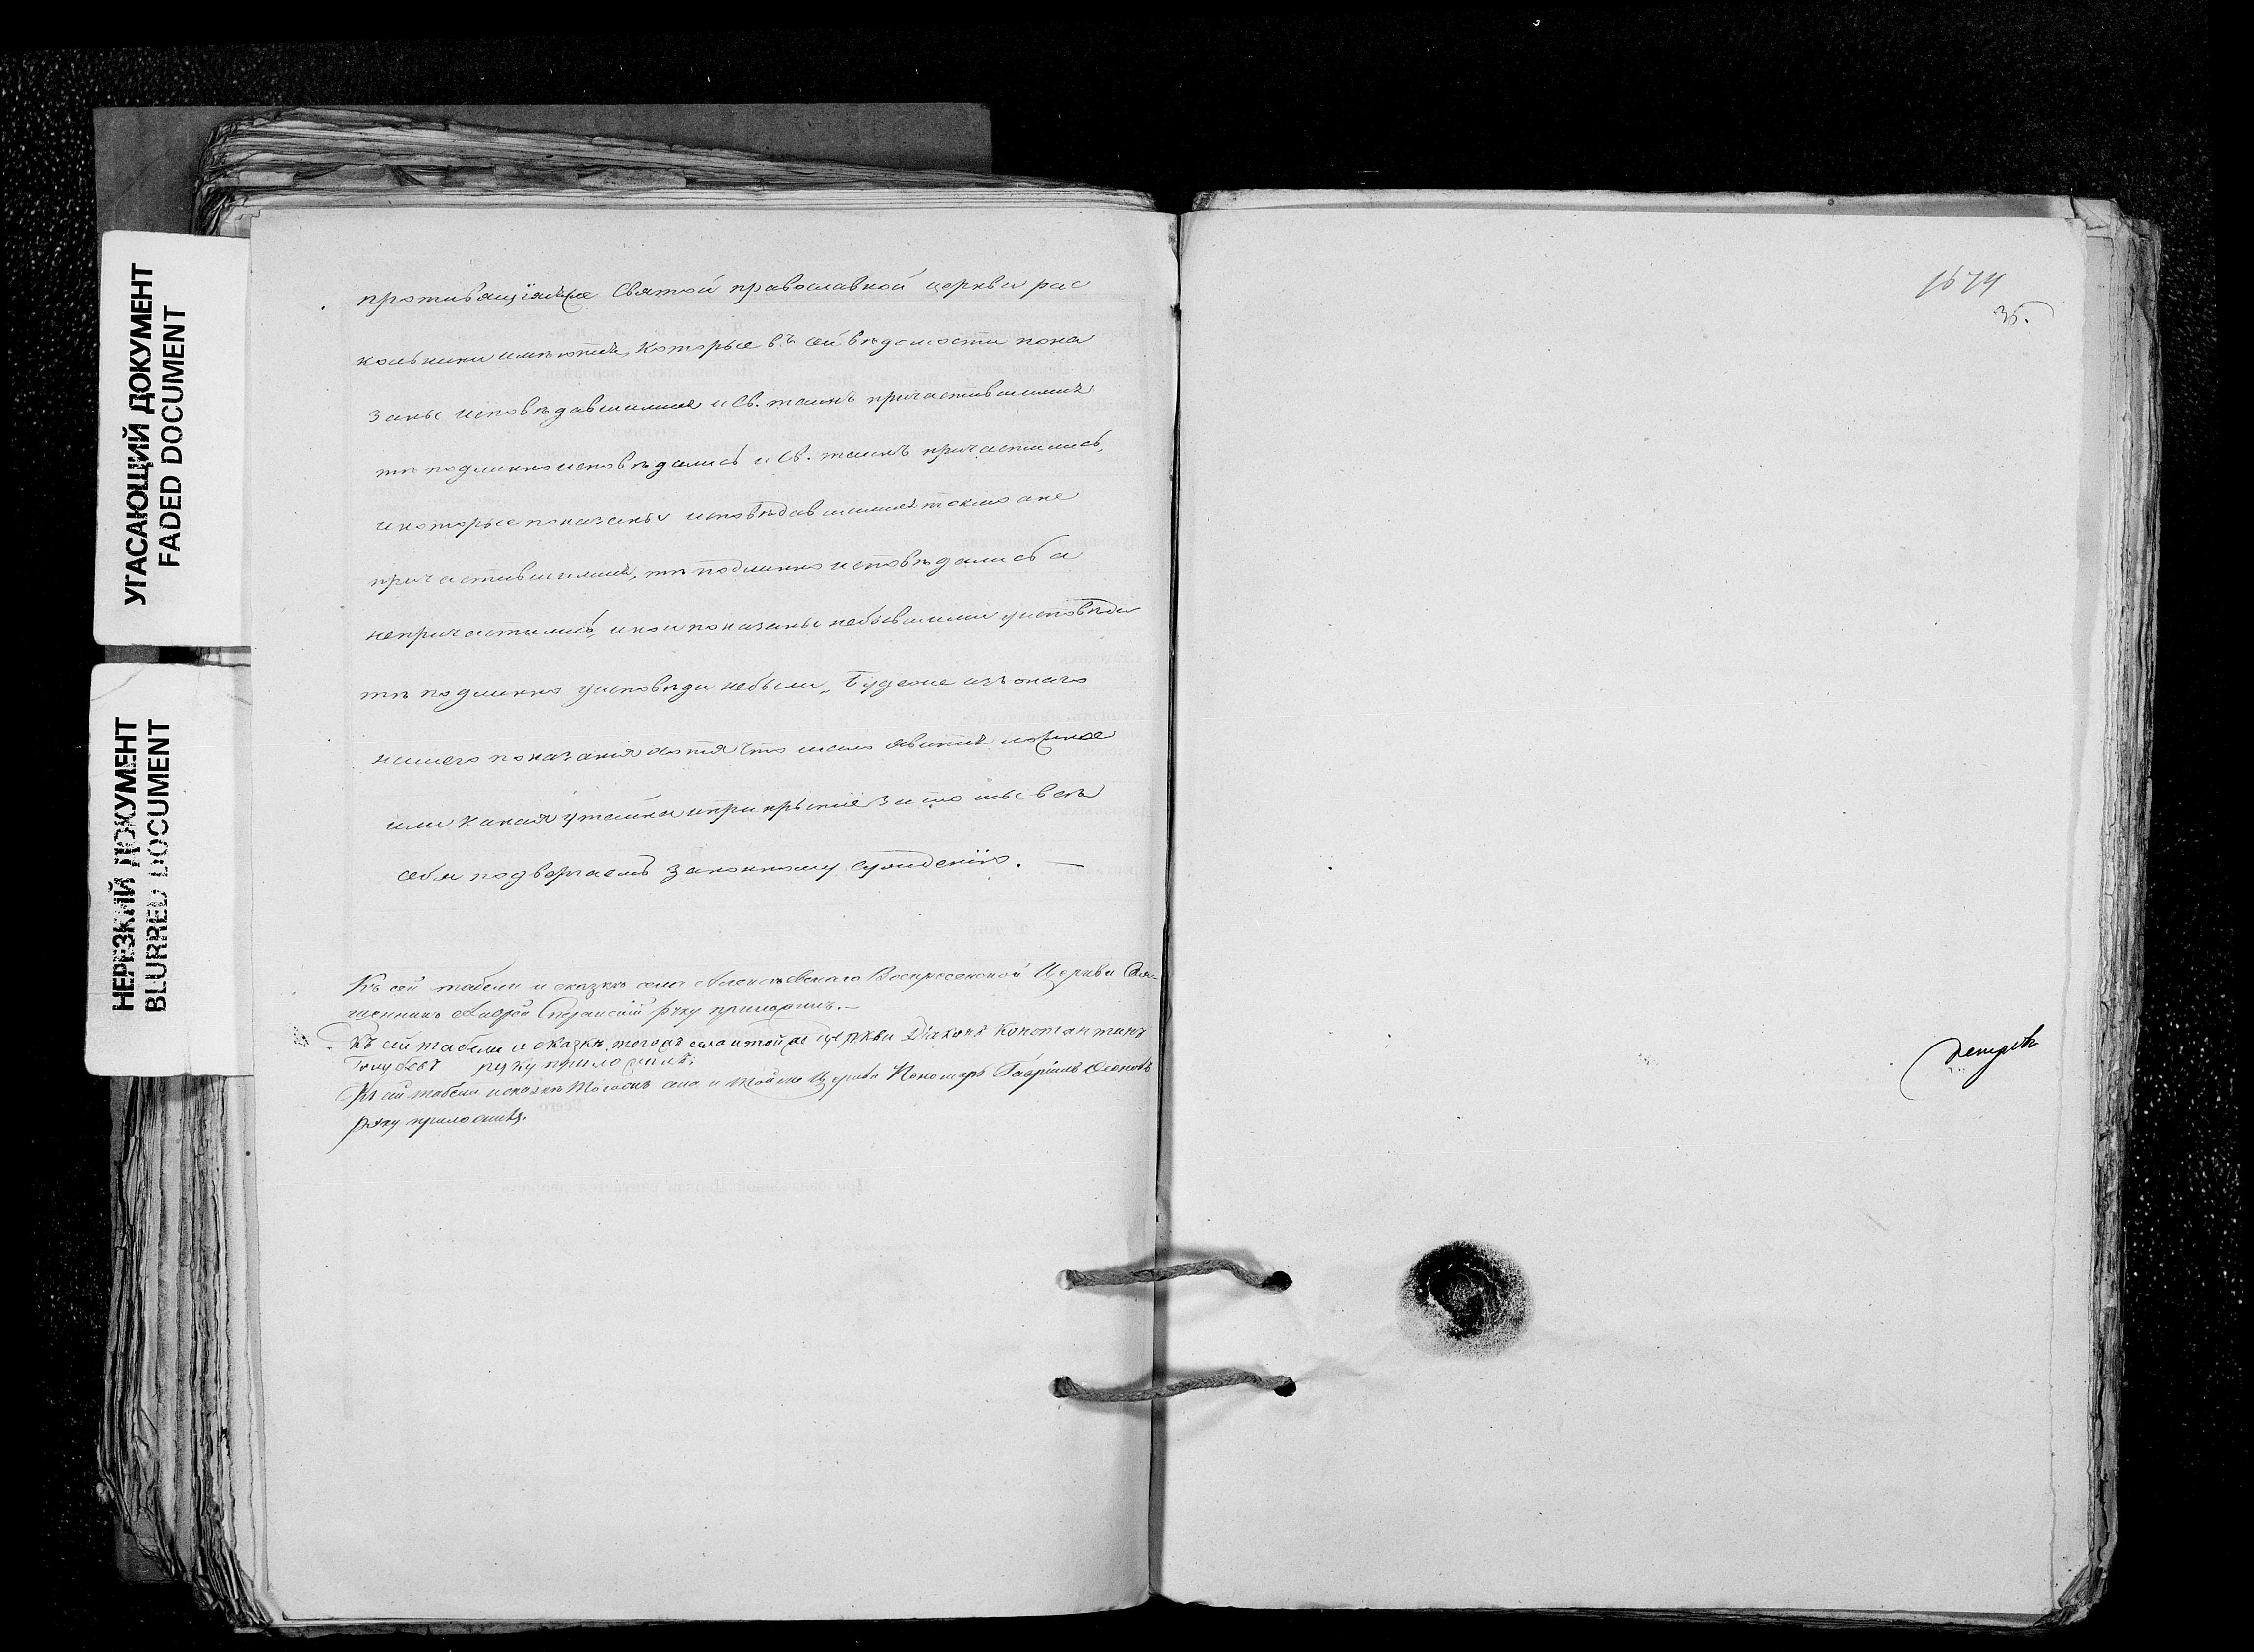 УГАСАЮЩИЙ ДОКУМЕНТ
FADED DOCUMENT
НЕРЕЗКИЙ ДОКУМЕНТ
BLURRED DOCUMENT
противящіяся Святой православной церкви рас
кольники имѣются, которые въ сей вѣдомости пока
заны исповѣдавшимися и Св. таинъ причастившимися
тѣ подлинно исповѣдались и Св. таинъ причастились,
и которые показаны исповѣдавшимися токмо а не
причастившимися, тѣ подлинно исповѣдались а
непричастились, и кои показаны небывшими у исповѣди
тѣ подлинно у исповѣди небыли, Буде же изъ онаго
нашего показанія хотя что мало явится ложное
или какая утайка и прикрытіе за то мы всѣ
себя подвергаемъ законному сужденію. —
Къ сей табели и сказкѣ села Воскресенской Церкви Свя-
щенникъ Андрей руку приложилъ.—
Къ сей табели и сказкѣ тогожъ села и той же церкви Діаконъ Константинъ
Голубевъ руку приложилъ.
Къ сей табели и сказкѣ тогожъ села и той же Церкви Пономарь Гавріилъ
руку приложилъ.
1674
35.